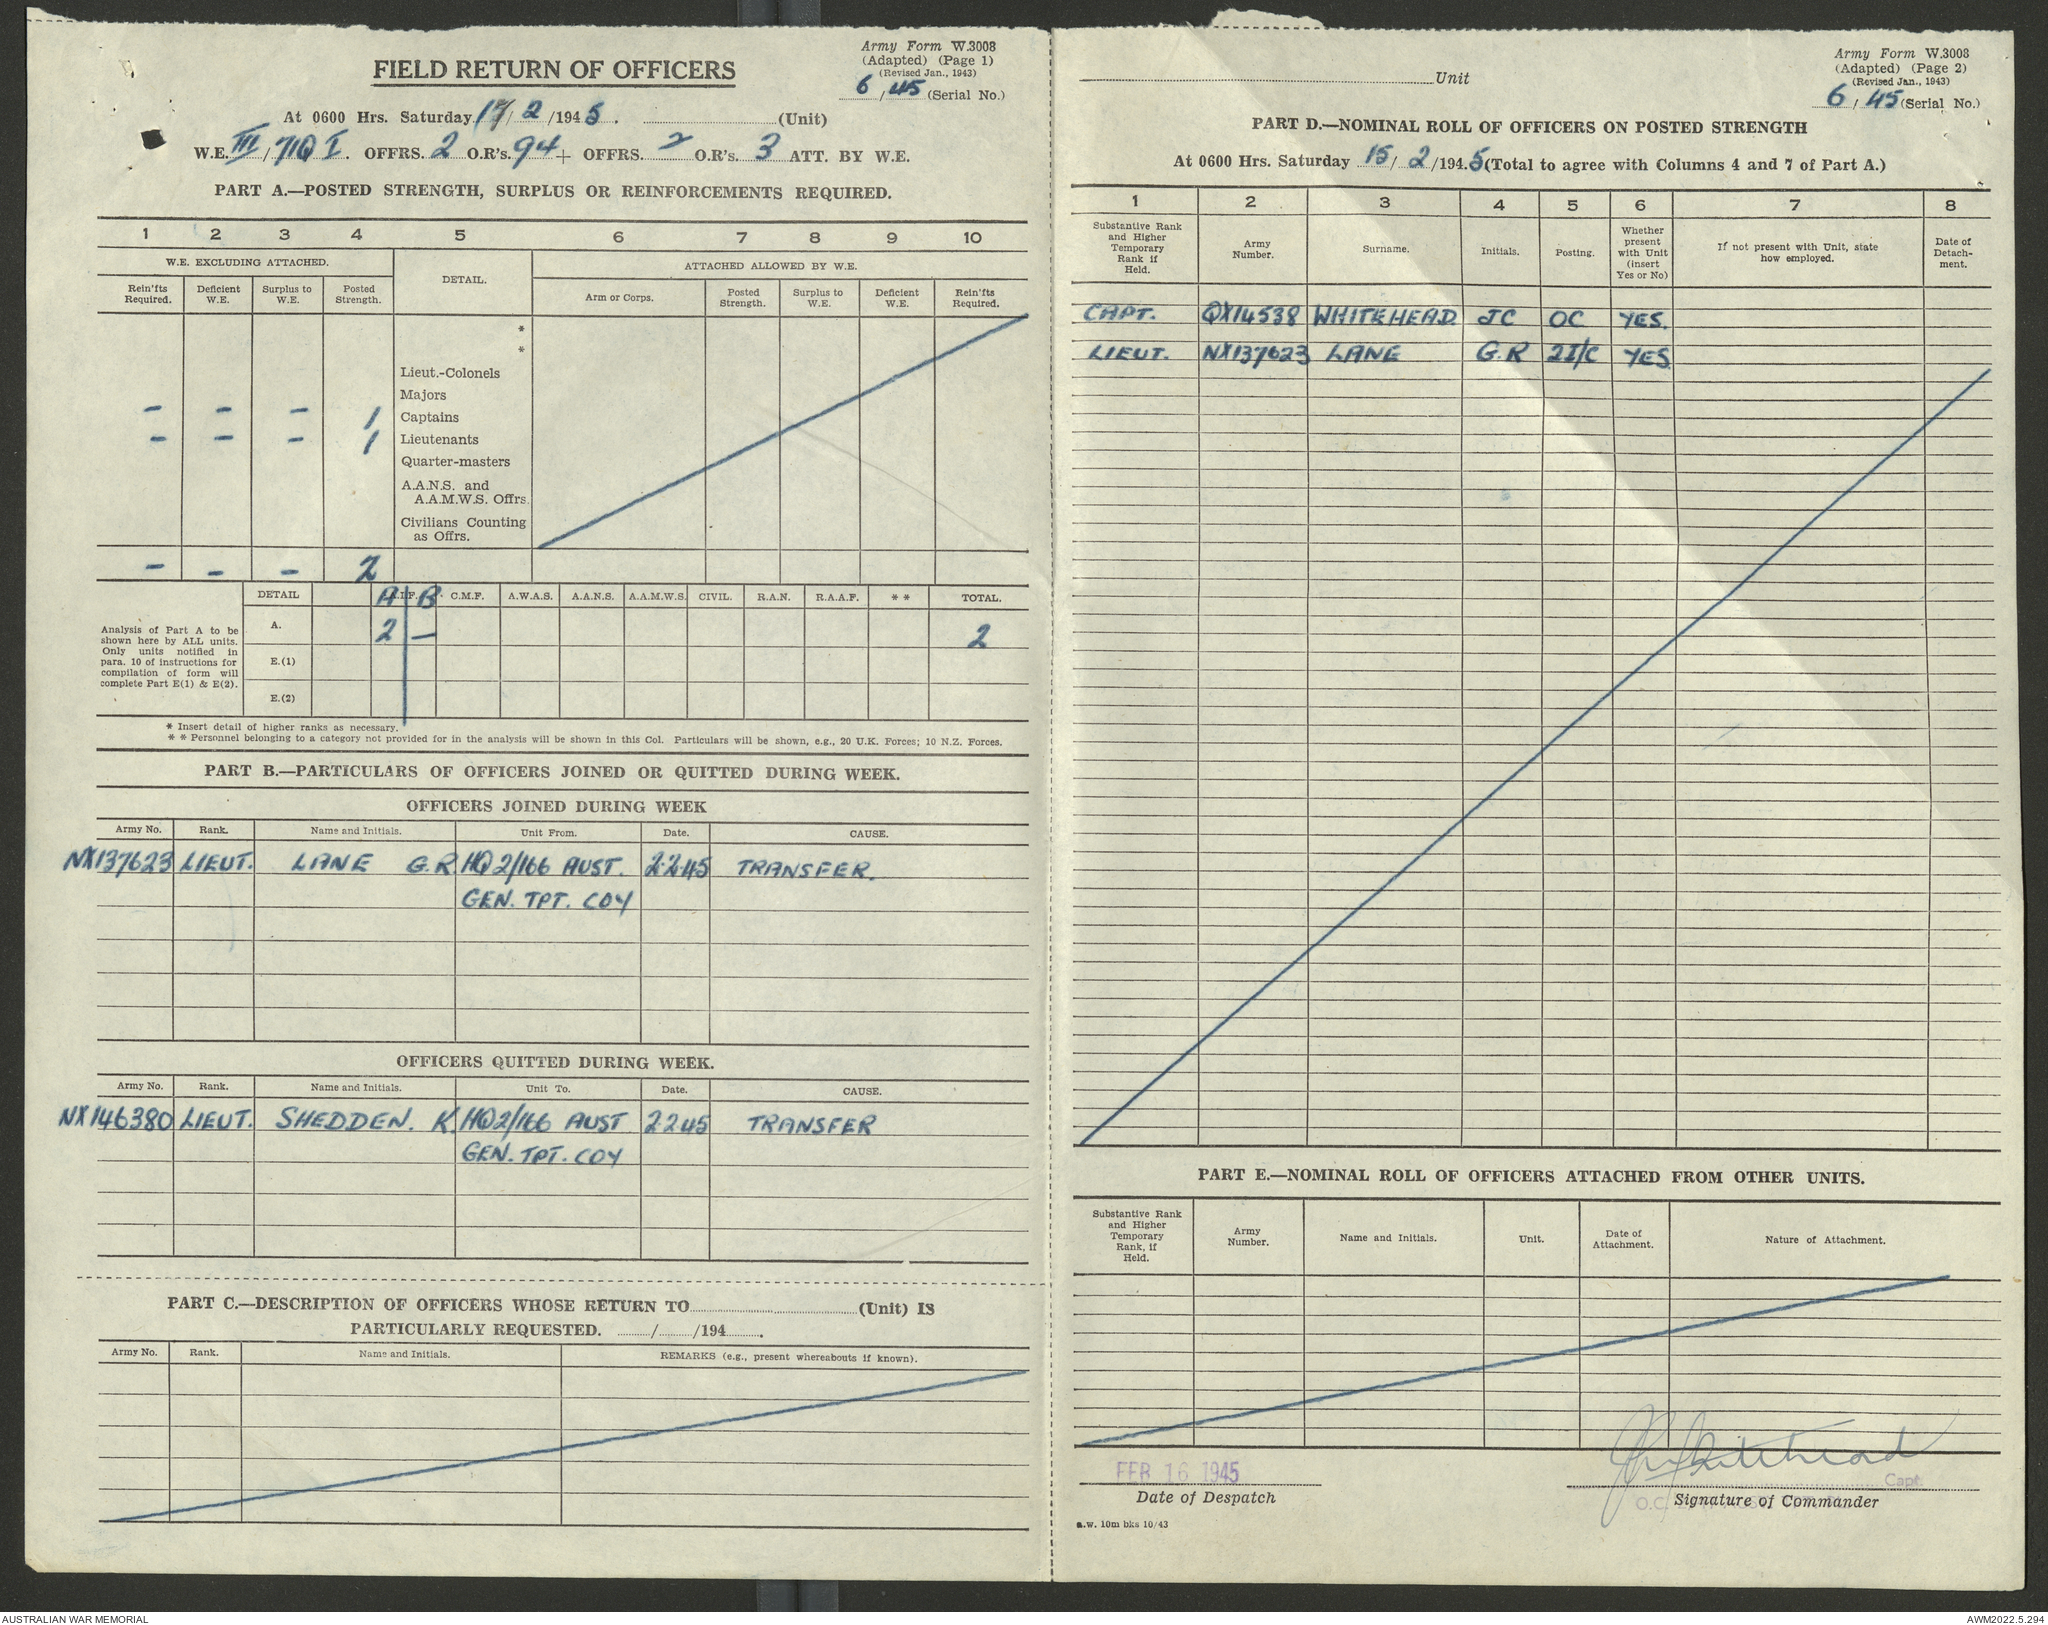 Army Form W.3008
(Adapted) (Page 1)
(Revised Jan., 1943)
6/45 (Serial No.)
FIELD RETURN OF OFFICERS
At 0600 Hrs. Saturday 17/2/1945. (Unit)
W.E. III/71Q I. OFFRS. 2 O.R's. 94 + OFFRS. 2 O.R's. 3 ATT. BY W.E.
PART A.—POSTED STRENGTH, SURPLUS OR REINFORCEMENTS REQUIRED.
1 2 3 4 5 6 7 8 9 10
W.E. EXCLUDING ATTACHED. DETAIL. ATTACHED ALLOWED BY W.E.
Rein'fts Required. Deficient W.E. Surplus to W.E. Posted Strength. Arm or Corps. Posted Strength. Surplus to W.E. Deficient W.E. Rein'fts Required.
*
*
Lieut.-Colonels
Majors
– – – 1 Captains
– – – 1 Lieutenants
Quarter-masters
A.A.N.S. and
A.A.M.W.S. Offrs.
Civilians Counting
as Offrs.
– – – 2
DETAIL A B C.M.F. A.W.A.S. A.A.N.S. A.A.M.W.S. CIVIL. R.A.N. R.A.A.F. * * TOTAL.
Analysis of Part A to be
shown here by ALL units.
Only units notified in
para. 10 of instructions for
compilation of form will
complete Part E(1) & E(2).
A. 2 – 2
E.(1)
E.(2)
* Insert detail of higher ranks as necessary.
* * Personnel belonging to a category not provided for in the analysis will be shown in this Col. Particulars will be shown, e.g., 20 U.K. Forces; 10 N.Z. Forces.
PART B.—PARTICULARS OF OFFICERS JOINED OR QUITTED DURING WEEK.
OFFICERS JOINED DURING WEEK
Army No. Rank. Name and Initials. Unit From. Date. CAUSE.
NX137623 LIEUT. LANE G.R. HQ 2/166 AUST. 2.2.45 TRANSFER.
GEN. TPT. COY
OFFICERS QUITTED DURING WEEK.
Army No. Rank. Name and Initials. Unit To. Date. CAUSE.
NX146380 LIEUT. SHEDDEN. K. HQ2/166 AUST 2.2.45 TRANSFER
GEN. TPT. COY
PART C.—DESCRIPTION OF OFFICERS WHOSE RETURN TO (Unit) IS
PARTICULARLY REQUESTED. / /194 .
Army No. Rank. Name and Initials. REMARKS (e.g., present whereabouts if known).
Army Form W.3008
(Adapted) (Page 2)
(Revised Jan., 1943)
Unit
6/45 (Serial No.)
PART D.—NOMINAL ROLL OF OFFICERS ON POSTED STRENGTH
At 0600 Hrs. Saturday 15/2/1945 (Total to agree with Columns 4 and 7 of Part A.)
1 2 3 4 5 6 7 8
Substantive Rank and Higher Temporary Rank if Held. Army Number. Surname. Initials. Posting. Whether present with Unit (insert Yes or No) If not present with Unit, state how employed. Date of Detach-ment.
CAPT. QX14538 WHITEHEAD JC OC YES.
LIEUT. NX137623 LANE G.R 2I/C YES
PART E.—NOMINAL ROLL OF OFFICERS ATTACHED FROM OTHER UNITS.
Substantive Rank and Higher Temporary Rank, if Held. Army Number. Name and Initials. Unit. Date of Attachment. Nature of Attachment.
FEB 16 1945
Date of Despatch
JC Whitehead
Capt.
O.C.
Signature of Commander
a.w. 10m bks 10/43
AUSTRALIAN WAR MEMORIAL
AWM2022.5.294